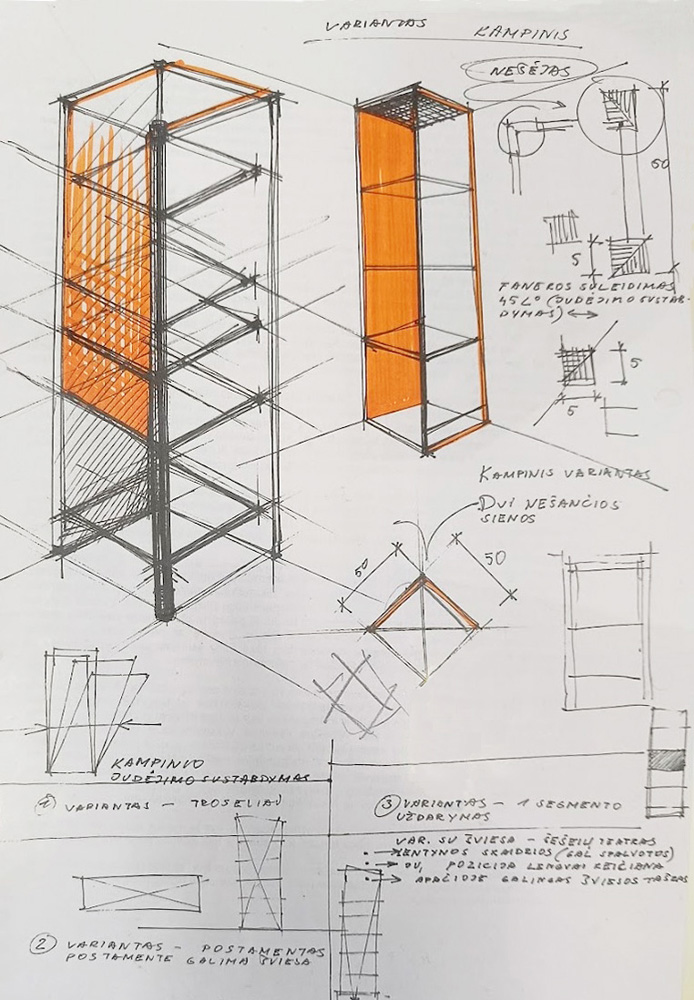 VARIANTAS KAMPINIS
NEŠĖJAS
60
5
FANEROS SULEIDIMAS
45L° (JUDĖJIMO SUSTAB-
DYMAS)
5
5
KAMPINIS VARIANTAS
DVI NEŠANČIOS
SIENOS
50
50
KAMPINIO
JUDĖJIMO SUSTABDYMAS
1 VARIANTAS - TROSELIAI
3 VARIANTAS - 1 SEGMENTO
UŽDARYMAS
VAR. SU ŠVIESA - ŠEŠĖLIŲ TEATRAS
LENTYNOS SKAIDRIOS (GAL SPALVOTOS)
POZICIJA LENGVAI KEIČIAMA
APAČIOJE GALINGAS ŠVIESOS TAŠKAS
2 VARIANTAS - POSTAMENTAS
POSTAMENTE GALIMA ŠVIESA